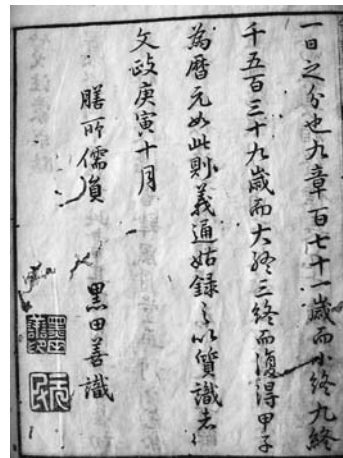 一日之分也九章百七十一歳而小終九終
千五百三十九歳而大終三終而復得甲子
為暦元如此則義通姑録之以質識者
文政庚寅十月
膳所儒員
黒田善識